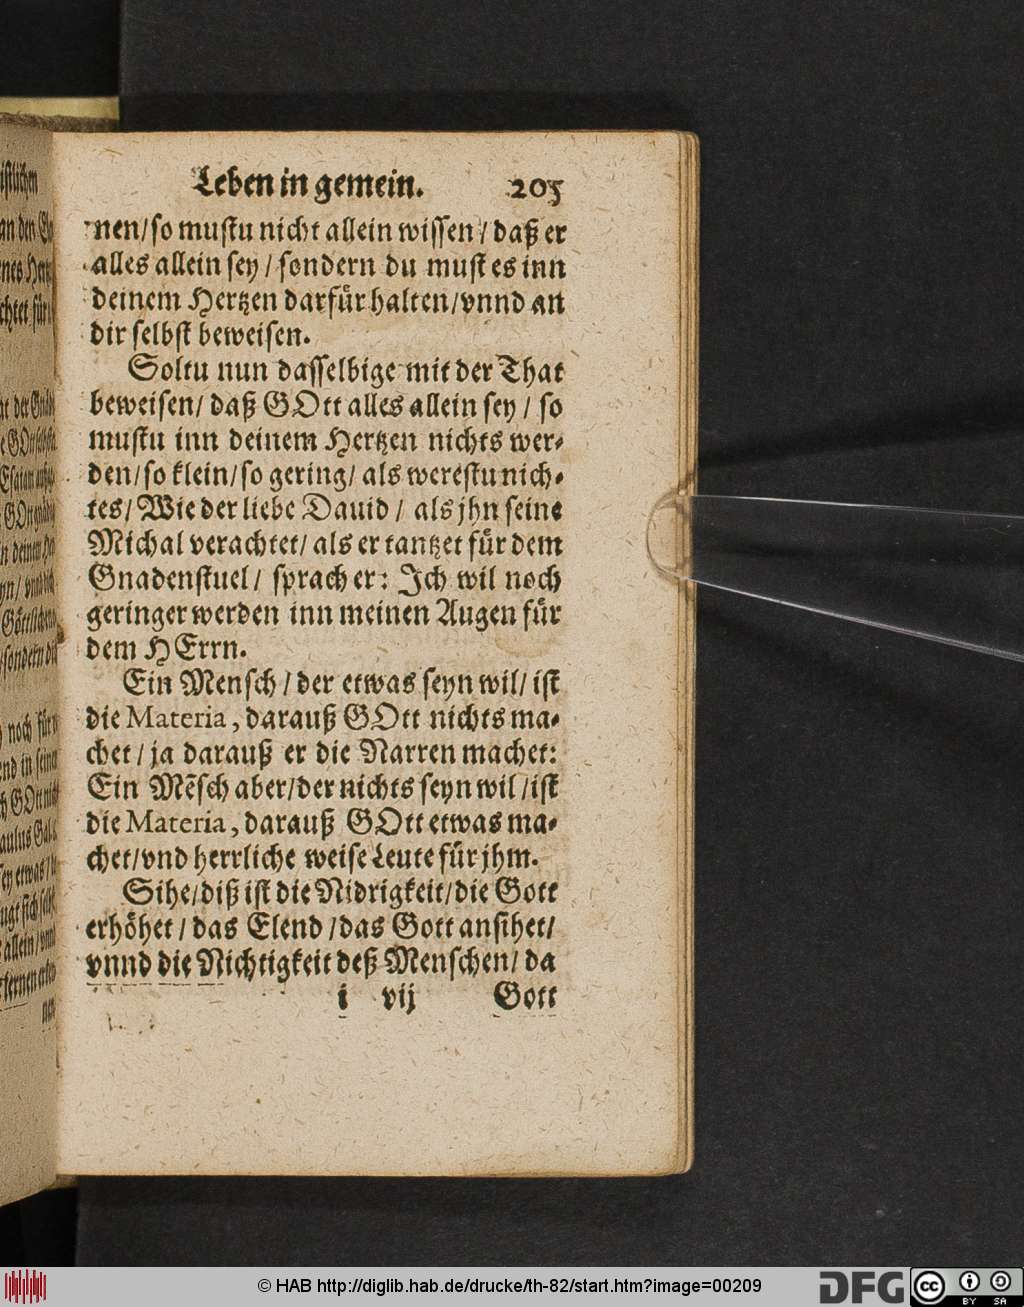 Leben in gemein. 205
nen/so mustu nicht allein wissen/ daß er
alles allein sey/ sondern du must es inn
deinem Hertzen darfür halten/vnnd an
dir selbst beweisen.
Soltu nun dasselbige mit der That
beweisen/ daß GOtt alles allein sey/ so
mustu inn deinem Hertzen nichts wer-
den/so klein/so gering/ als werestu nich-
tes/ Wie der liebe Dauid/ als jhn seine
Michal verachtet/ als er tantzet für dem
Gnadenstuel/ sprach er: Ich wil noch
geringer werden inn meinen Augen für
dem HErrn.
Ein Mensch/ der etwas seyn wil/ ist
die Materia, darauß GOtt nichts ma-
chet/ ja darauß er die Narren machet:
Ein Mẽsch aber/der nichts seyn wil/ist
die Materia, darauß GOtt etwas ma-
chet/vnd herrliche weise Leute für jhm.
Sihe/diß ist die Nidrigkeit/die Gott
erhöhet/ das Elend/das Gott ansihet/
vnnd die Nichtigkeit deß Menschen/ da
i vij Gott
© HAB http://diglib.hab.de/drucke/th-82/start.htm?image=00209
DFG
cc BY SA